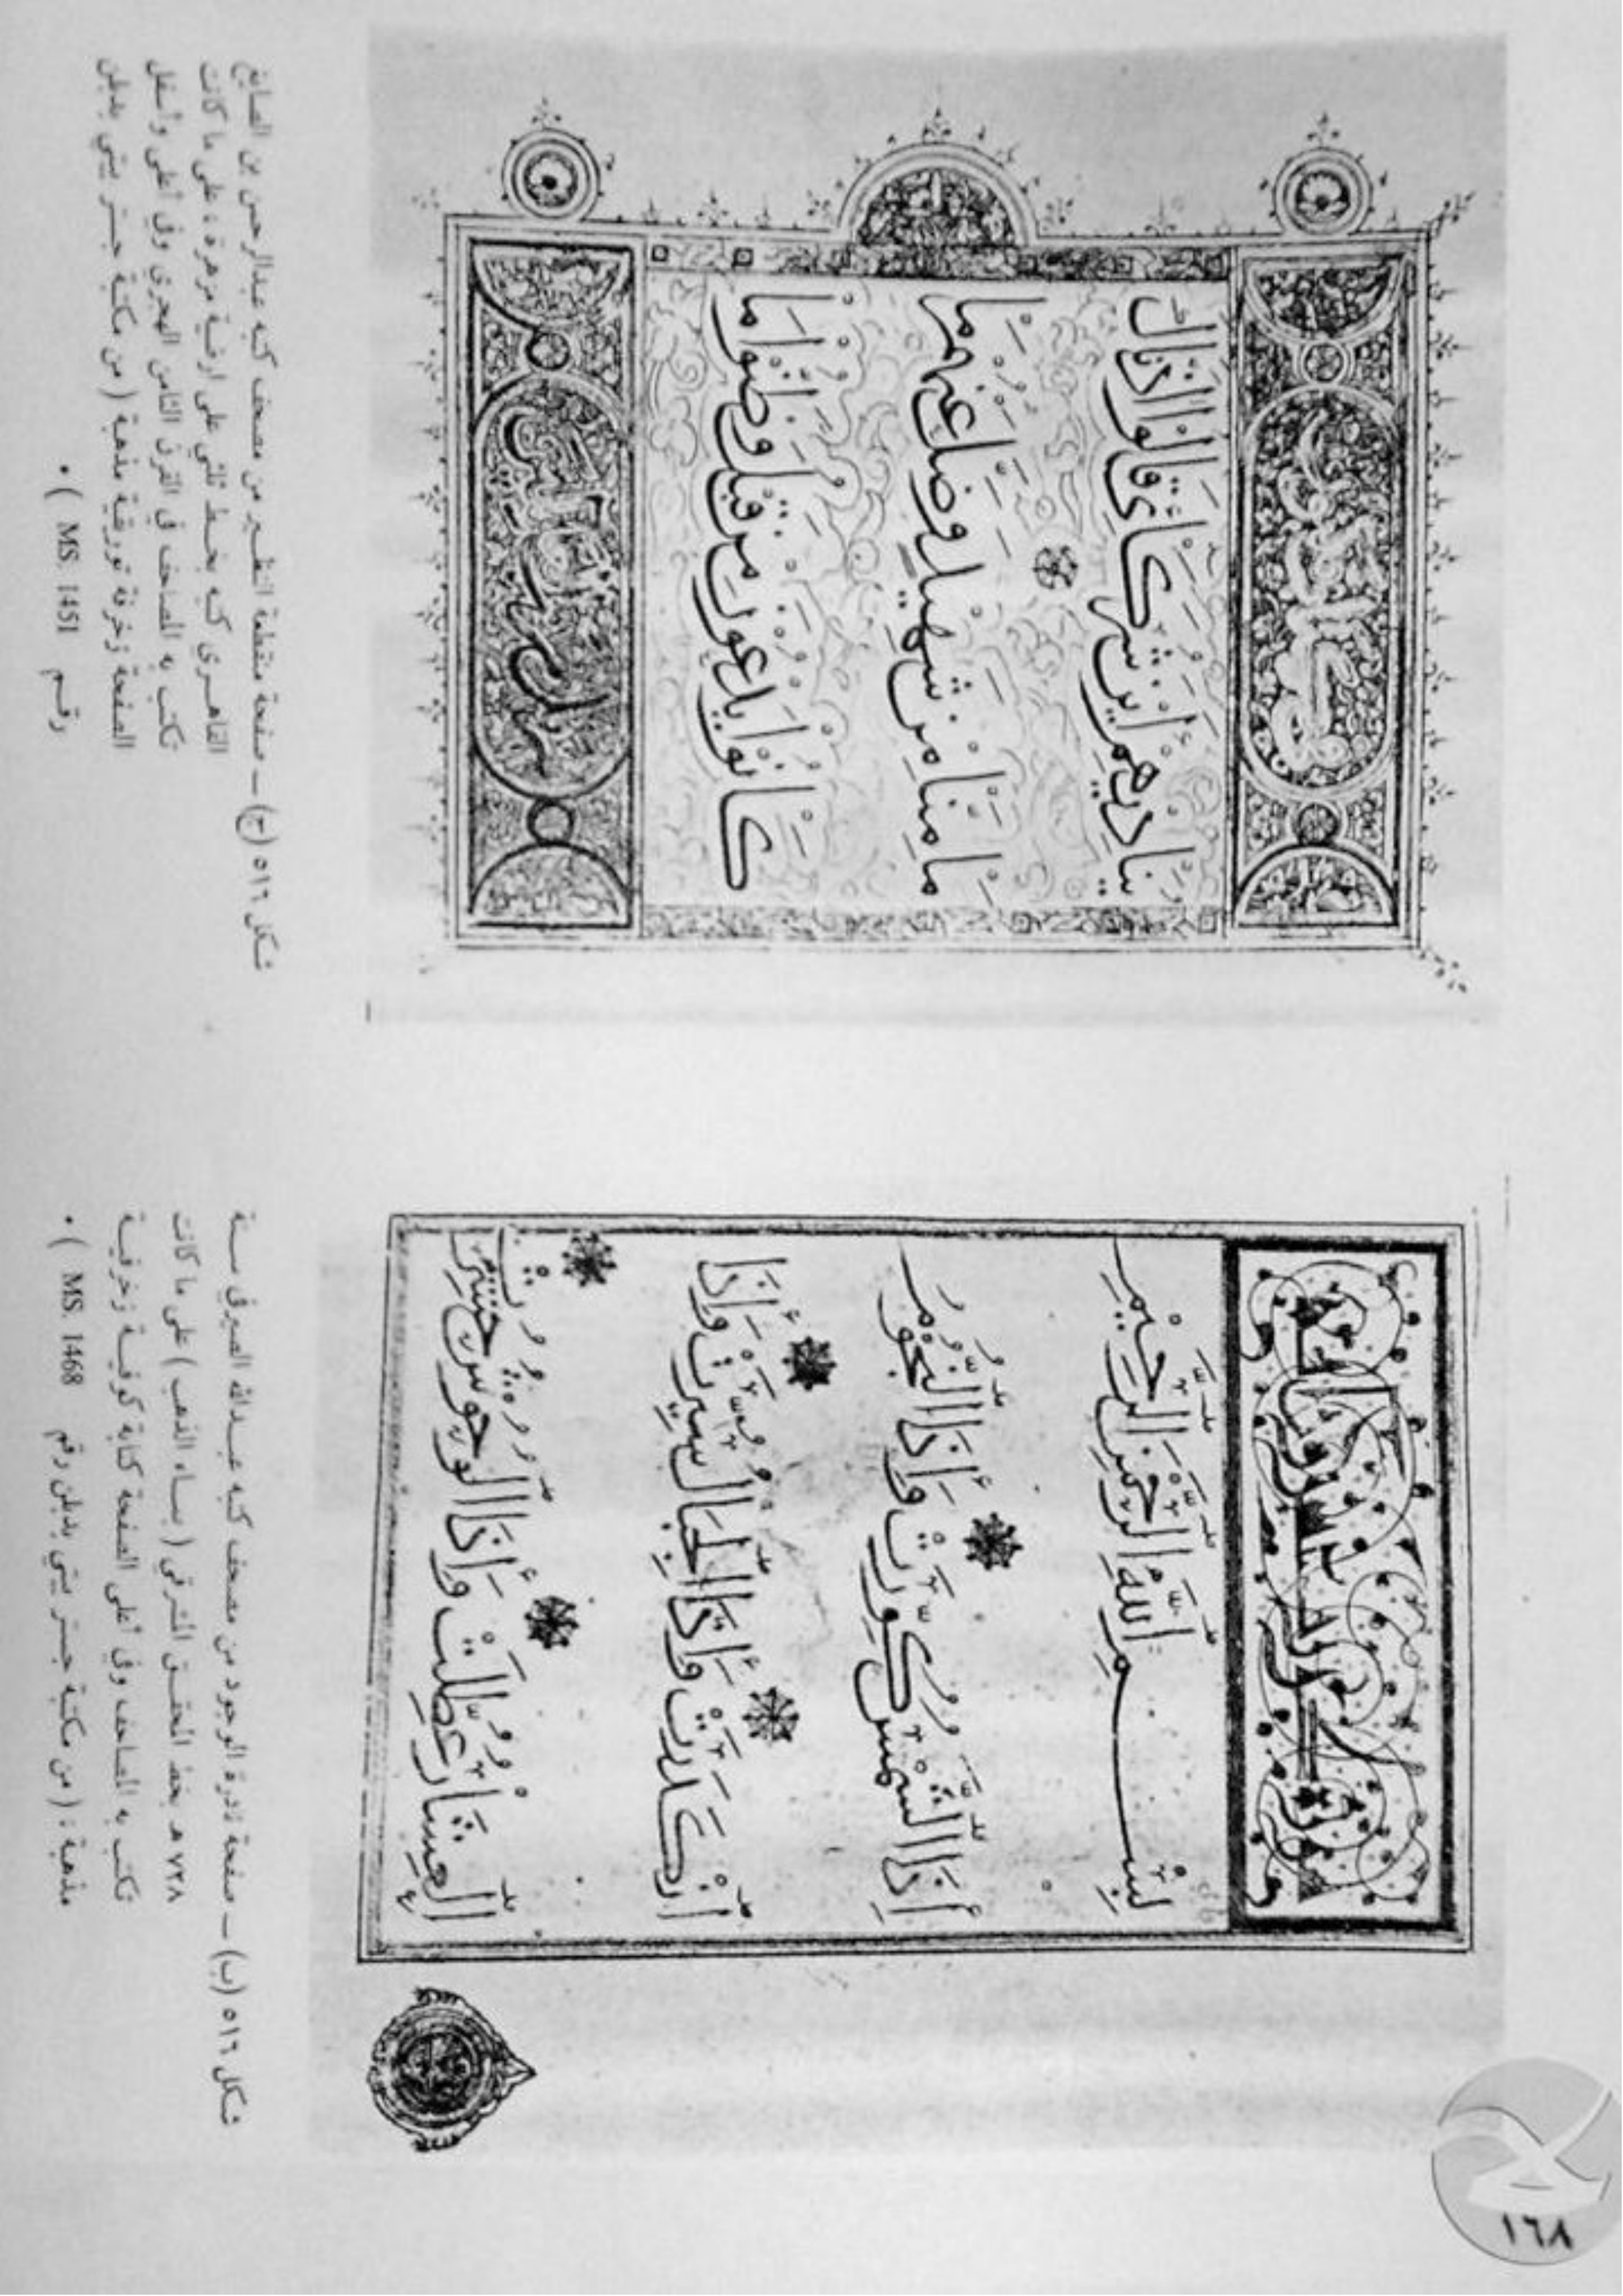 بِسْمِ اللَّهِ الرَّحْمَنِ الرَّحِيمِ
إِذَا الشَّمْسُ كُوِّرَتْ وَإِذَا النُّجُومُ
انْكَدَرَتْ وَإِذَا الْجِبَالُ سُيِّرَتْ وَإِذَا
الْعِشَارُ عُطِّلَتْ وَإِذَا الْوُحُوشُ حُشِرَتْ
شكل ٥١٦ (ب) ــ صفحة نادرة الوجود من مصحف كتبه عبدالله الصيرفي سنة
٧٢٨ هـ بخط المحقق الشرقي ( بماء الذهب ) على ما كانت
تكتب به المصاحف وفي أعلى الصفحة كتابة كوفية زخرفية
مذهبة : ( من مكتبة جستر بيتي بدبلن رقم MS. 1468 ) .
يُنَادِيهِمْ أَيْنَ شُرَكَائِي قَالُوا آذَنَّاكَ
مَا مِنَّا مِنْ شَهِيدٍ وَضَلَّ عَنْهُمْ مَا
كَانُوا يَدْعُونَ مِنْ قَبْلُ وَظَنُّوا مَا
شكل ٥١٦ (ج) ــ صفحة منقطعة النظير من مصحف كتبه عبدالرحمن بن الصايغ
القاهري كتبه بخط ثلثي على ارضية مزهرة ، على ما كانت
تكتب به المصاحف في القرن الثامن الهجري وفي أعلى وأسفل
الصفحة زخرفة توريقية مذهبة ( من مكتبة جستر بيتي بدبلن
رقم MS. 1451 ) .
١٦٨